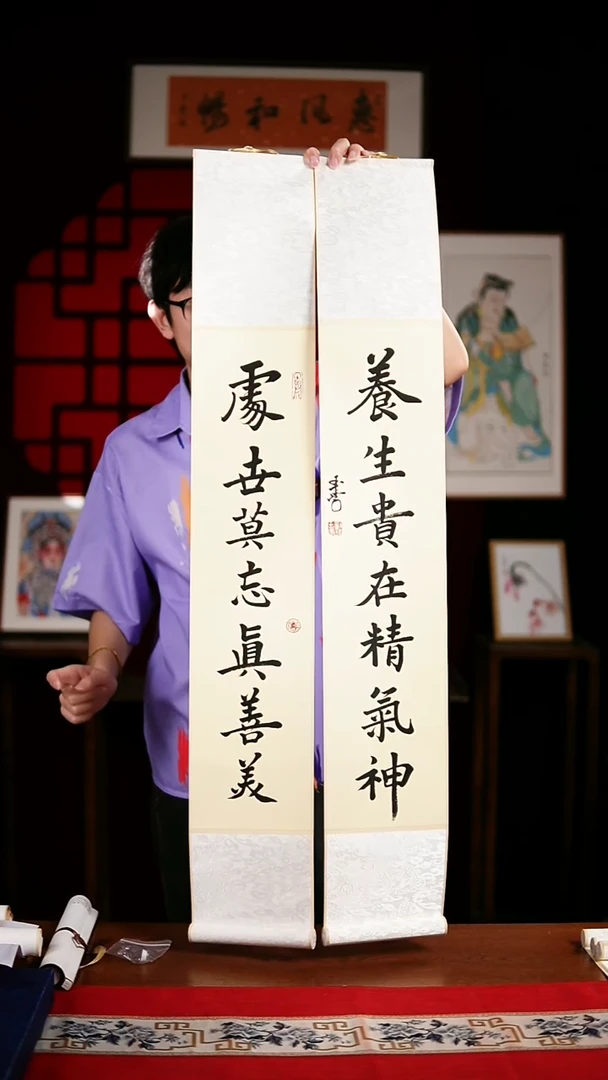 惠風和暢
養生貴在精氣神
處世莫忘眞善美